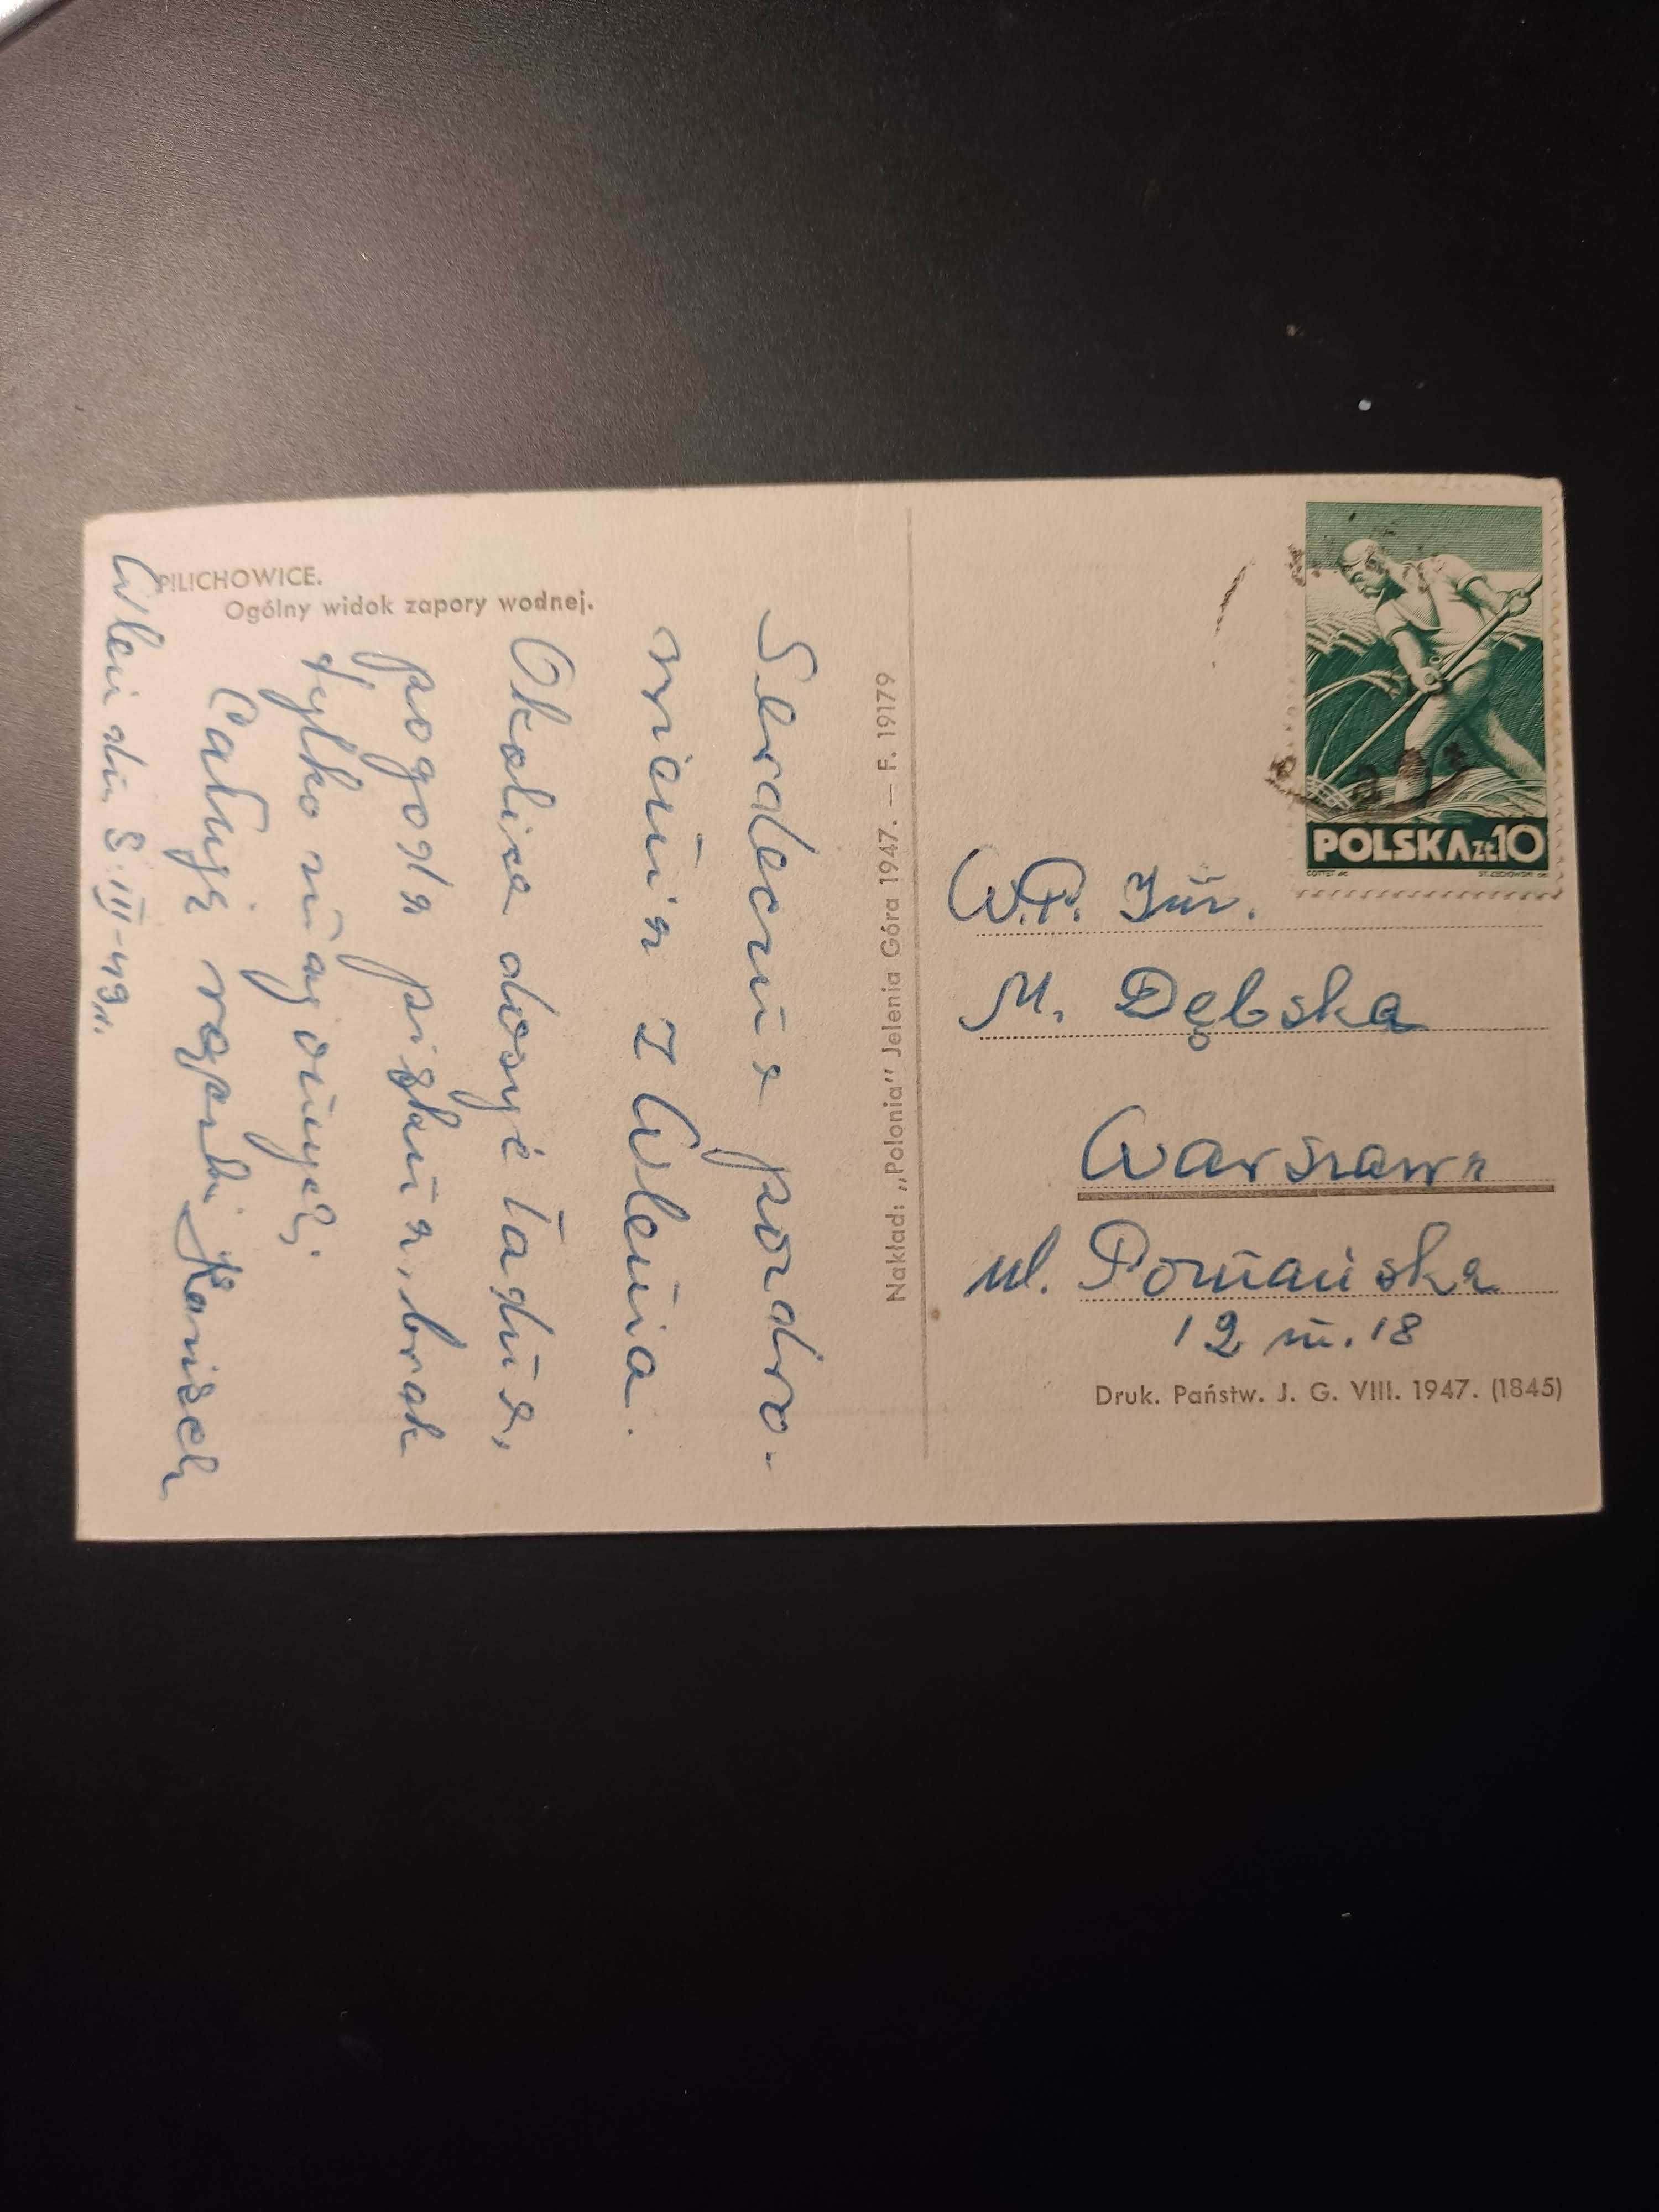 PILICHOWICE.
Ogólny widok zapory wodnej.
Serdeczne pozdro-
wienia z Wlenia.
Okolica dosyć ładna,
pogoda piękna, brak
tylko
Całuję rączki
Wleń dn. 8.III-49r.
Nakład: „Polonia" Jelenia Góra 1947. — F. 19179
POLSKA ZŁ 10
W.P. Inż.
M. Dębska
Warszawa
ul. Poznańska
12 m. 18
Druk. Państw. J. G. VIII. 1947. (1845)